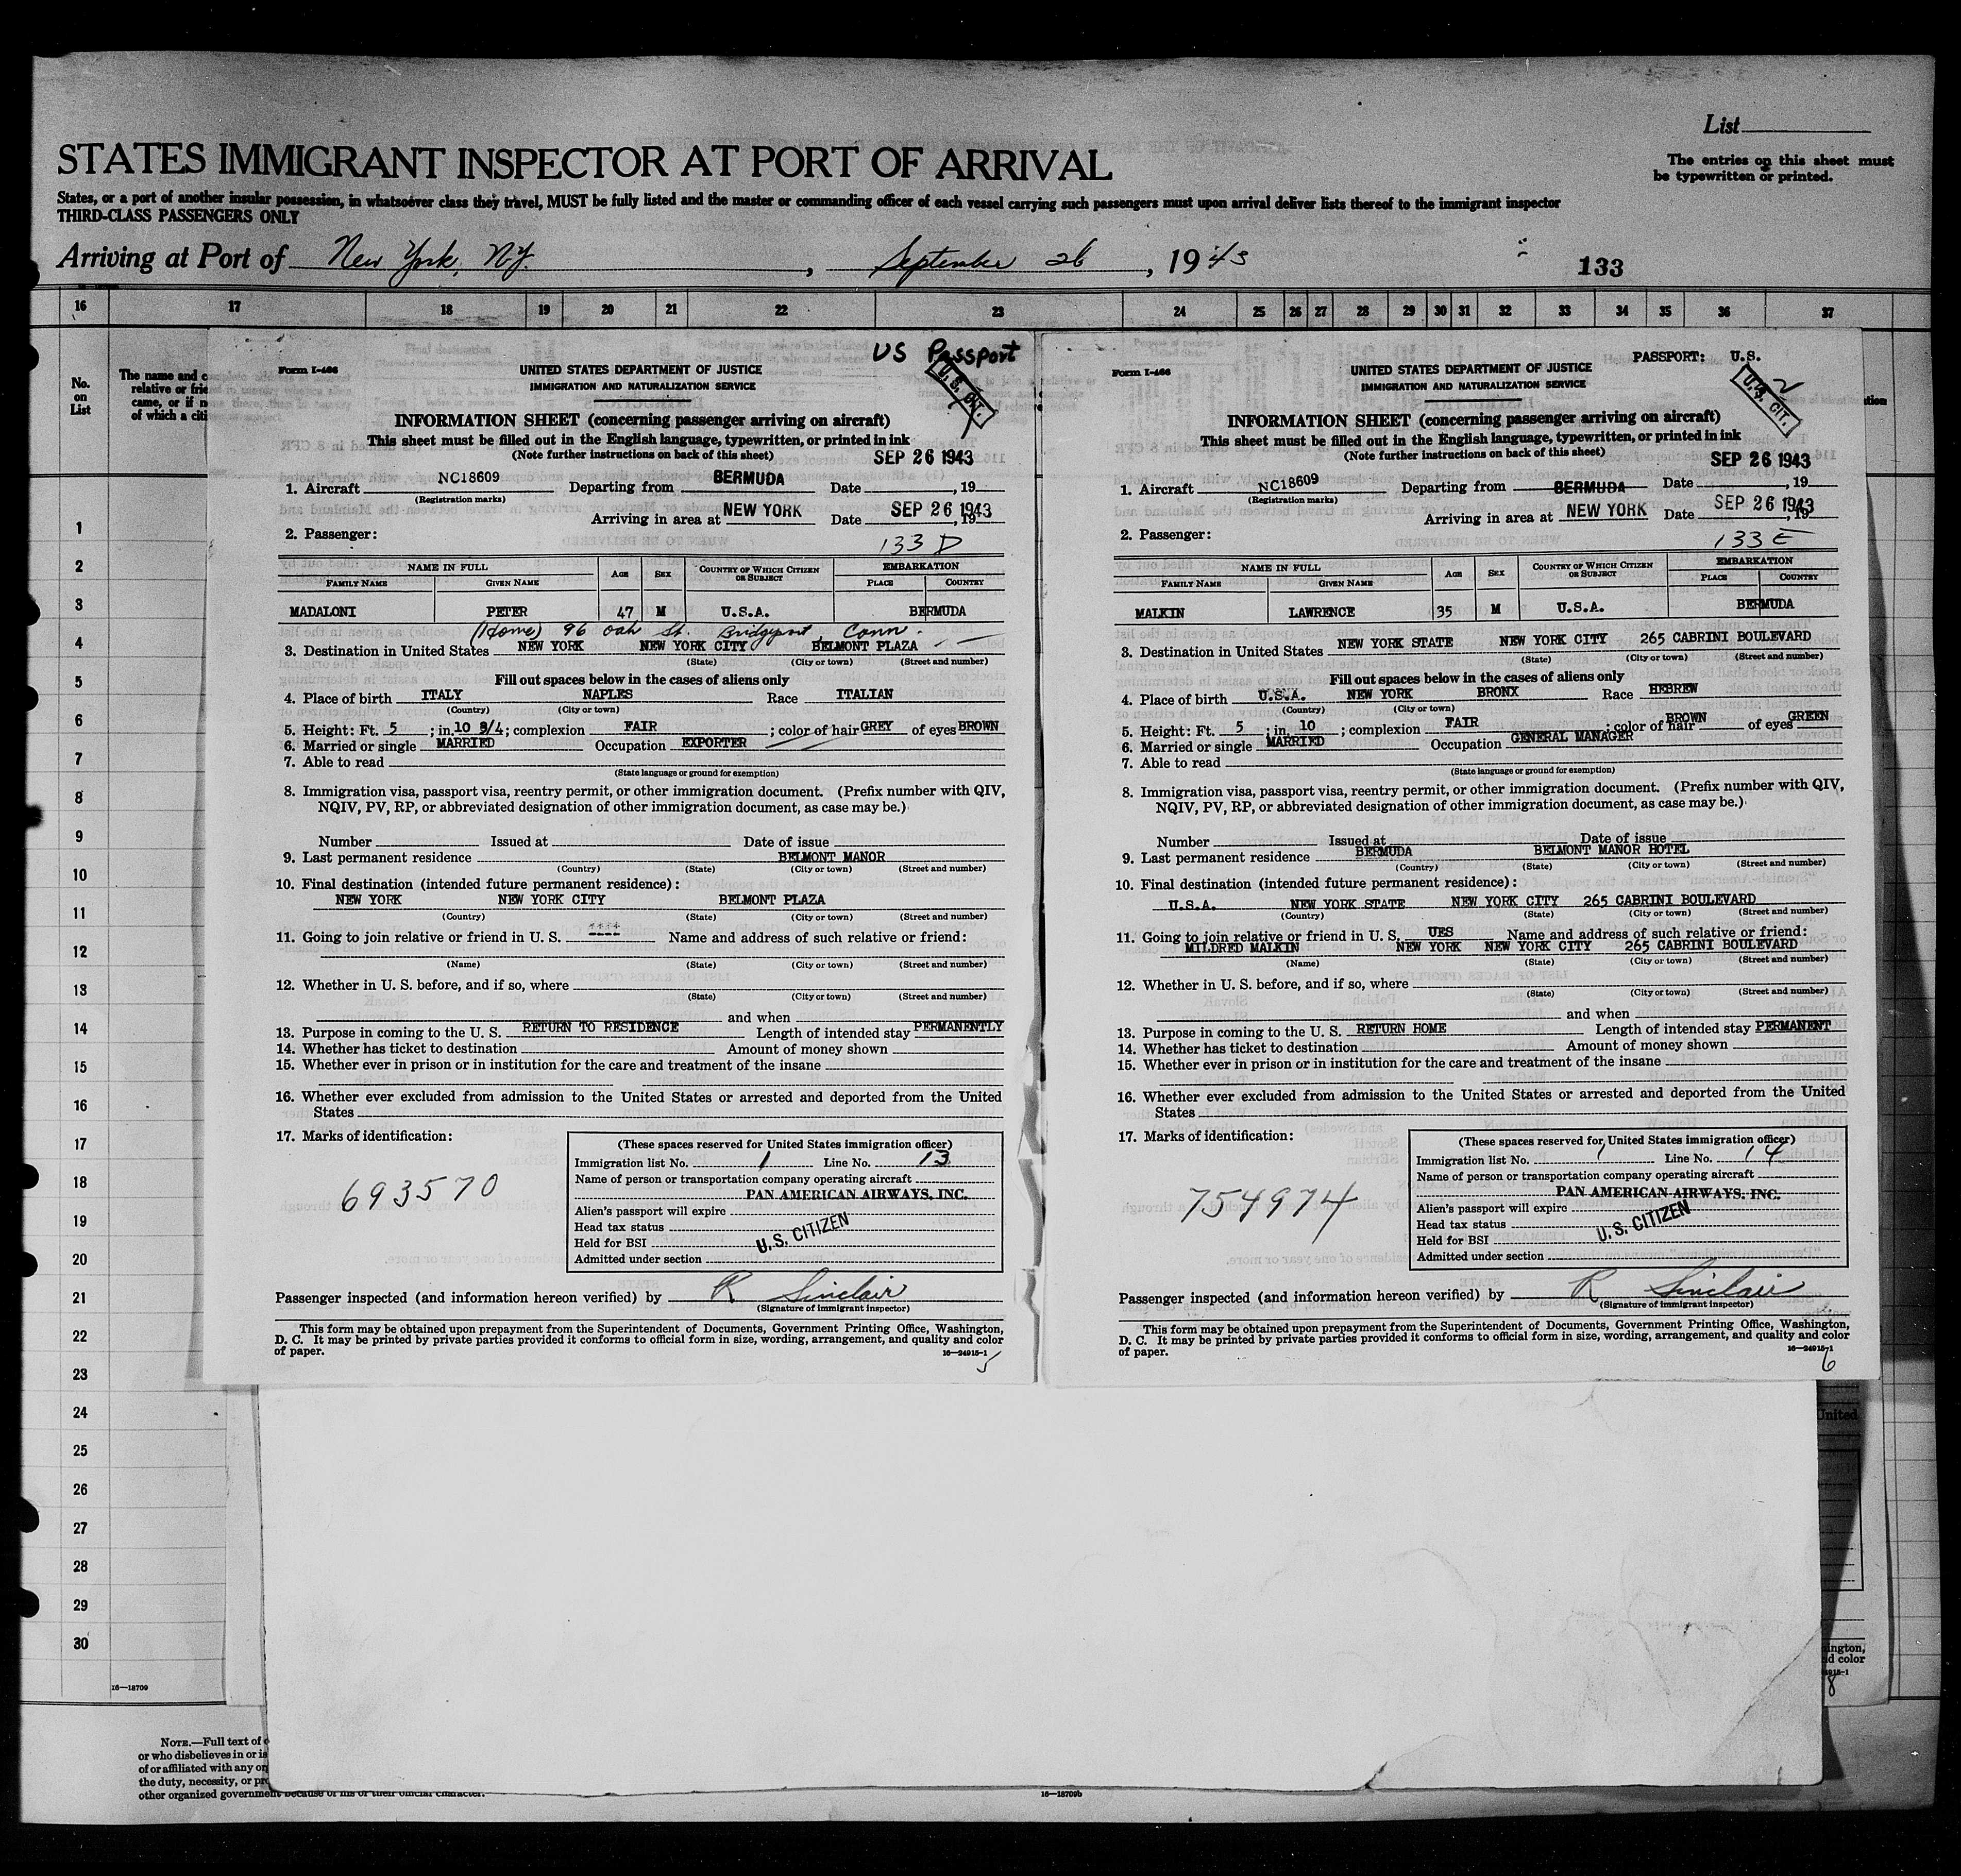 List
STATES IMMIGRANT INSPECTOR AT PORT OF ARRIVAL
The entries on this sheet must
be typewritten or printed.
States, or a port of another insular possession, in whatsoever class they travel, MUST be fully listed and the master or commanding officer of each vessel carrying such passengers must upon arrival deliver lists thereof to the immigrant inspector
THIRD-CLASS PASSENGERS ONLY
Arriving at Port of New York, N.Y. , September 26 , 1943
133
16 17 18 19 20 21 22 23 24 25 26 27 28 29 30 31 32 33 34 35 36 37
No.
on
List
The name and c
relative or frie
came, or if n
of which a citi
1
2
3
4
5
6
7
8
9
10
11
12
13
14
15
16
17
18
19
20
21
22
23
24
25
26
27
28
29
30
US Passport
U.S. CIT.
Form I-466
UNITED STATES DEPARTMENT OF JUSTICE
IMMIGRATION AND NATURALIZATION SERVICE
INFORMATION SHEET (concerning passenger arriving on aircraft)
This sheet must be filled out in the English language, typewritten, or printed in ink
(Note further instructions on back of this sheet)
SEP 26 1943
1. Aircraft NC18609 Departing from BERMUDA Date , 19
(Registration marks)
Arriving in area at NEW YORK Date SEP 26 1943 , 19
2. Passenger:
133 D
NAME IN FULL AGE SEX COUNTRY OF WHICH CITIZEN OR SUBJECT EMBARKATION
FAMILY NAME GIVEN NAME PLACE COUNTRY
MADALONI PETER 47 M U.S.A. BERMUDA
(Home) 96 Oak St. Bridgeport, Conn.
3. Destination in United States NEW YORK NEW YORK CITY BELMONT PLAZA
(State) (City or town) (Street and number)
Fill out spaces below in the cases of aliens only
4. Place of birth ITALY NAPLES Race ITALIAN
(Country) (City or town)
5. Height: Ft. 5 ; in. 10 3/4; complexion FAIR ; color of hair GREY of eyes BROWN
6. Married or single MARRIED Occupation EXPORTER
7. Able to read
(State language or ground for exemption)
8. Immigration visa, passport visa, reentry permit, or other immigration document. (Prefix number with QIV,
NQIV, PV, RP, or abbreviated designation of other immigration document, as case may be.)
Number Issued at Date of issue
9. Last permanent residence BELMONT MANOR
(Country) (State) (City or town) (Street and number)
10. Final destination (intended future permanent residence):
NEW YORK NEW YORK CITY BELMONT PLAZA
(Country) (State) (City or town) (Street and number)
11. Going to join relative or friend in U. S. Name and address of such relative or friend:
(Name) (State) (City or town) (Street and number)
12. Whether in U. S. before, and if so, where
(State) (City or town) (Street and number)
and when
13. Purpose in coming to the U. S. RETURN TO RESIDENCE Length of intended stay PERMANENTLY
14. Whether has ticket to destination Amount of money shown
15. Whether ever in prison or in institution for the care and treatment of the insane
16. Whether ever excluded from admission to the United States or arrested and deported from the United
States
17. Marks of identification:
693570
(These spaces reserved for United States immigration officer)
Immigration list No. 1 Line No. 13
Name of person or transportation company operating aircraft
PAN AMERICAN AIRWAYS, INC.
Alien's passport will expire
Head tax status
Held for BSI
U.S. CITIZEN
Admitted under section
Passenger inspected (and information hereon verified) by R Sinclair
(Signature of immigrant inspector)
This form may be obtained upon prepayment from the Superintendent of Documents, Government Printing Office, Washington,
D. C. It may be printed by private parties provided it conforms to official form in size, wording, arrangement, and quality and color
of paper.
16—24915-1
5
PASSPORT: U.S.
U.S. CIT.
2
Form I-466
UNITED STATES DEPARTMENT OF JUSTICE
IMMIGRATION AND NATURALIZATION SERVICE
INFORMATION SHEET (concerning passenger arriving on aircraft)
This sheet must be filled out in the English language, typewritten, or printed in ink
(Note further instructions on back of this sheet)
SEP 26 1943
1. Aircraft NC18609 Departing from BERMUDA Date , 19
(Registration marks)
Arriving in area at NEW YORK Date SEP 26 1943 , 19
2. Passenger:
133 E
NAME IN FULL AGE SEX COUNTRY OF WHICH CITIZEN OR SUBJECT EMBARKATION
FAMILY NAME GIVEN NAME PLACE COUNTRY
MALKIN LAWRENCE 35 M U.S.A. BERMUDA
3. Destination in United States NEW YORK STATE NEW YORK CITY 265 CABRINI BOULEVARD
(State) (City or town) (Street and number)
Fill out spaces below in the cases of aliens only
4. Place of birth U.S.A. NEW YORK BRONX Race HEBREW
(Country) (City or town)
5. Height: Ft. 5 ; in. 10 ; complexion FAIR ; color of hair BROWN of eyes GREEN
6. Married or single MARRIED Occupation GENERAL MANAGER
7. Able to read
(State language or ground for exemption)
8. Immigration visa, passport visa, reentry permit, or other immigration document. (Prefix number with QIV,
NQIV, PV, RP, or abbreviated designation of other immigration document, as case may be.)
Number Issued at Date of issue
9. Last permanent residence BERMUDA BELMONT MANOR HOTEL
(Country) (State) (City or town) (Street and number)
10. Final destination (intended future permanent residence):
U.S.A. NEW YORK STATE NEW YORK CITY 265 CABRINI BOULEVARD
(Country) (State) (City or town) (Street and number)
11. Going to join relative or friend in U. S. UES Name and address of such relative or friend:
MILDRED MALKIN NEW YORK NEW YORK CITY 265 CABRINI BOULEVARD
(Name) (State) (City or town) (Street and number)
12. Whether in U. S. before, and if so, where
(State) (City or town) (Street and number)
and when
13. Purpose in coming to the U. S. RETURN HOME Length of intended stay PERMANENT
14. Whether has ticket to destination Amount of money shown
15. Whether ever in prison or in institution for the care and treatment of the insane
16. Whether ever excluded from admission to the United States or arrested and deported from the United
States
17. Marks of identification:
754974
(These spaces reserved for United States immigration officer)
Immigration list No. 1 Line No. 14
Name of person or transportation company operating aircraft
PAN AMERICAN AIRWAYS, INC.
Alien's passport will expire
Head tax status
Held for BSI
U.S. CITIZEN
Admitted under section
Passenger inspected (and information hereon verified) by R Sinclair
(Signature of immigrant inspector)
This form may be obtained upon prepayment from the Superintendent of Documents, Government Printing Office, Washington,
D. C. It may be printed by private parties provided it conforms to official form in size, wording, arrangement, and quality and color
of paper.
16—24915-1
6
United
ington,
d color
4915-1
8
16—18709
NOTE.—Full text of
or who disbelieves in or is
of or affiliated with any on
the duty, necessity, or pro
other organized government because of his or their official character.
16—18709b